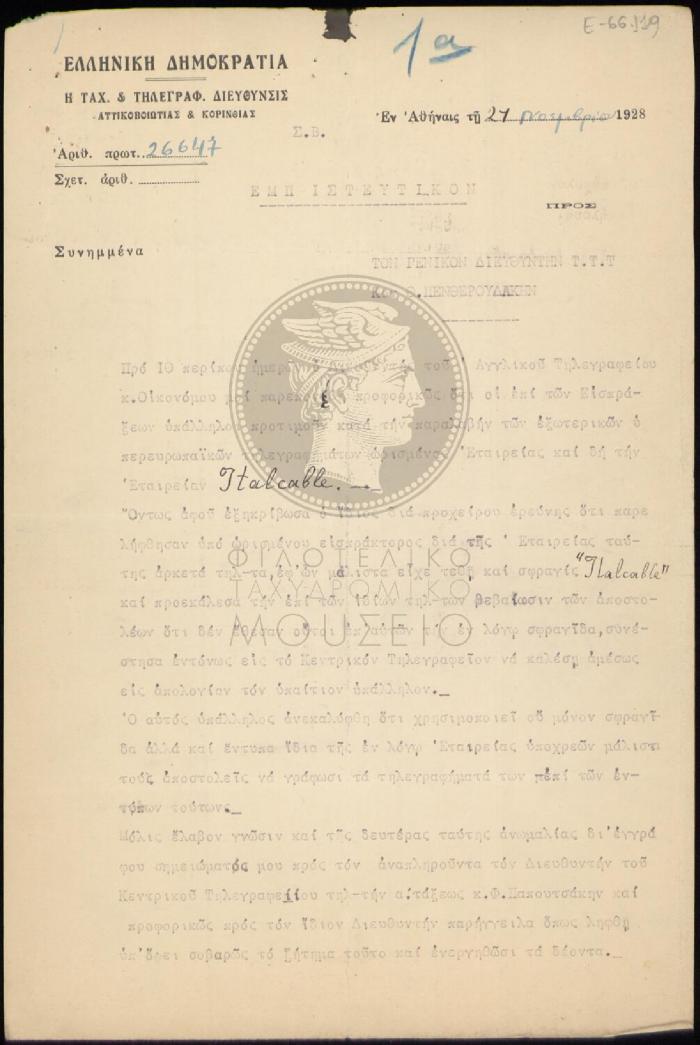 Ε-66.119
1α
ΕΛΛΗΝΙΚΗ ΔΗΜΟΚΡΑΤΙΑ
Η ΤΑΧ. & ΤΗΛΕΓΡΑΦ. ΔΙΕΥΘΥΝΣΙΣ
ΑΤΤΙΚΟΒΟΙΩΤΙΑΣ & ΚΟΡΙΝΘΙΑΣ
Ἐν Ἀθήναις τῇ 27 Νοεμβρίου 1928
Σ.Β.
Ἀριθ. πρωτ. 26647
Σχετ. ἀριθ.
ΕΜΠΙΣΤΕΥΤΙΚΟΝ
ΠΡΟΣ
Συνημμένα
ΤΟΝ ΓΕΝΙΚΟΝ ΔΙΕΥΘΥΝΤΗΝ Τ.Τ.Τ
ΠΕΝΘΕΡΟΥΔΑΚΗΝ
Πρό 10 περίπου τοῦ Ἀγγλικοῦ Τηλεγραφείου
κ.Οἰκονόμου μοί προφορικῶς ὅτι οἱ ἐπί τῶν Εἰσπρά-
ξεων ὑπάλληλοι προτιμοῦν κατά τήν παραλαβήν τῶν ἐξωτερικῶν ὁ
περευρωπαϊκῶν τηλεγραφημάτων Ἑταιρείας καί δή τήν
Ἑταιρείαν Italcable._._
Ὄντως ἀφοῦ ἐξηκρίβωσα ὁ ἴδιος διά προχείρου ἐρεύνης ὅτι παρε
λήφθησαν ὑπό ὡρισμένου εἰσπράκτορος διά τῆς Ἑταιρείας ταύ-
της ἀρκετά τηλ-τα,ἐφ'ὧν μάλιστα εἶχε τεθῆ καί σφραγίς "Italcable"
καί προεκάλεσα τήν ἐπί τῶν ἰδίων τηλ-των βεβαίωσιν τῶν ἀποστο-
λέων ὅτι δέν ἔθεσαν οὗτοι ἐπ'αὐτῶν τήν ἐν λόγῳ σφραγῖδα,συνέ-
στησα ἐντόνως εἰς τό Κεντρικόν Τηλεγραφεῖον νά καλέσῃ ἀμέσως
εἰς ἀπολογίαν τόν ὑπαίτιον ὑπάλληλον._
Ὁ αὐτός ὑπάλληλος ἀνεκαλύφθη ὅτι χρησιμοποιεῖ οὐ μόνον σφραγῖ
δα ἀλλά καί ἔντυπα ἴδια τῆς ἐν λόγῳ Ἑταιρείας ὑποχρεῶν μάλιστ
τούς ἀποστολεῖς νά γράφωσι τά τηλεγραφήματά των ἐπί τῶν ἐν-
τύπων τούτων._
Μόλις ἔλαβον γνῶσιν καί τῆς δευτέρας ταύτης ἀνωμαλίας δι'ἐγγρά
φου σημειώματός μου πρός τόν ἀναπληροῦντα τόν Διευθυντήν τοῦ
Κεντρικοῦ Τηλεγραφείου τηλ-τήν α.τάξεως κ.Φ.Παπουτσάκην καί
προφορικῶς πρός τόν ἴδιον Διευθυντήν παρήγγειλα ὅπως ληφθῇ
ὑπ'ὄψει σοβαρῶς τό ζήτημα τοῦτο καί ἐνεργηθῶσι τά δέοντα._
ΦΙΛΟΤΕΛΙΚΟ
ΤΑΧΥΔΡΟΜΙΚΟ
ΜΟΥΣΕΙΟ